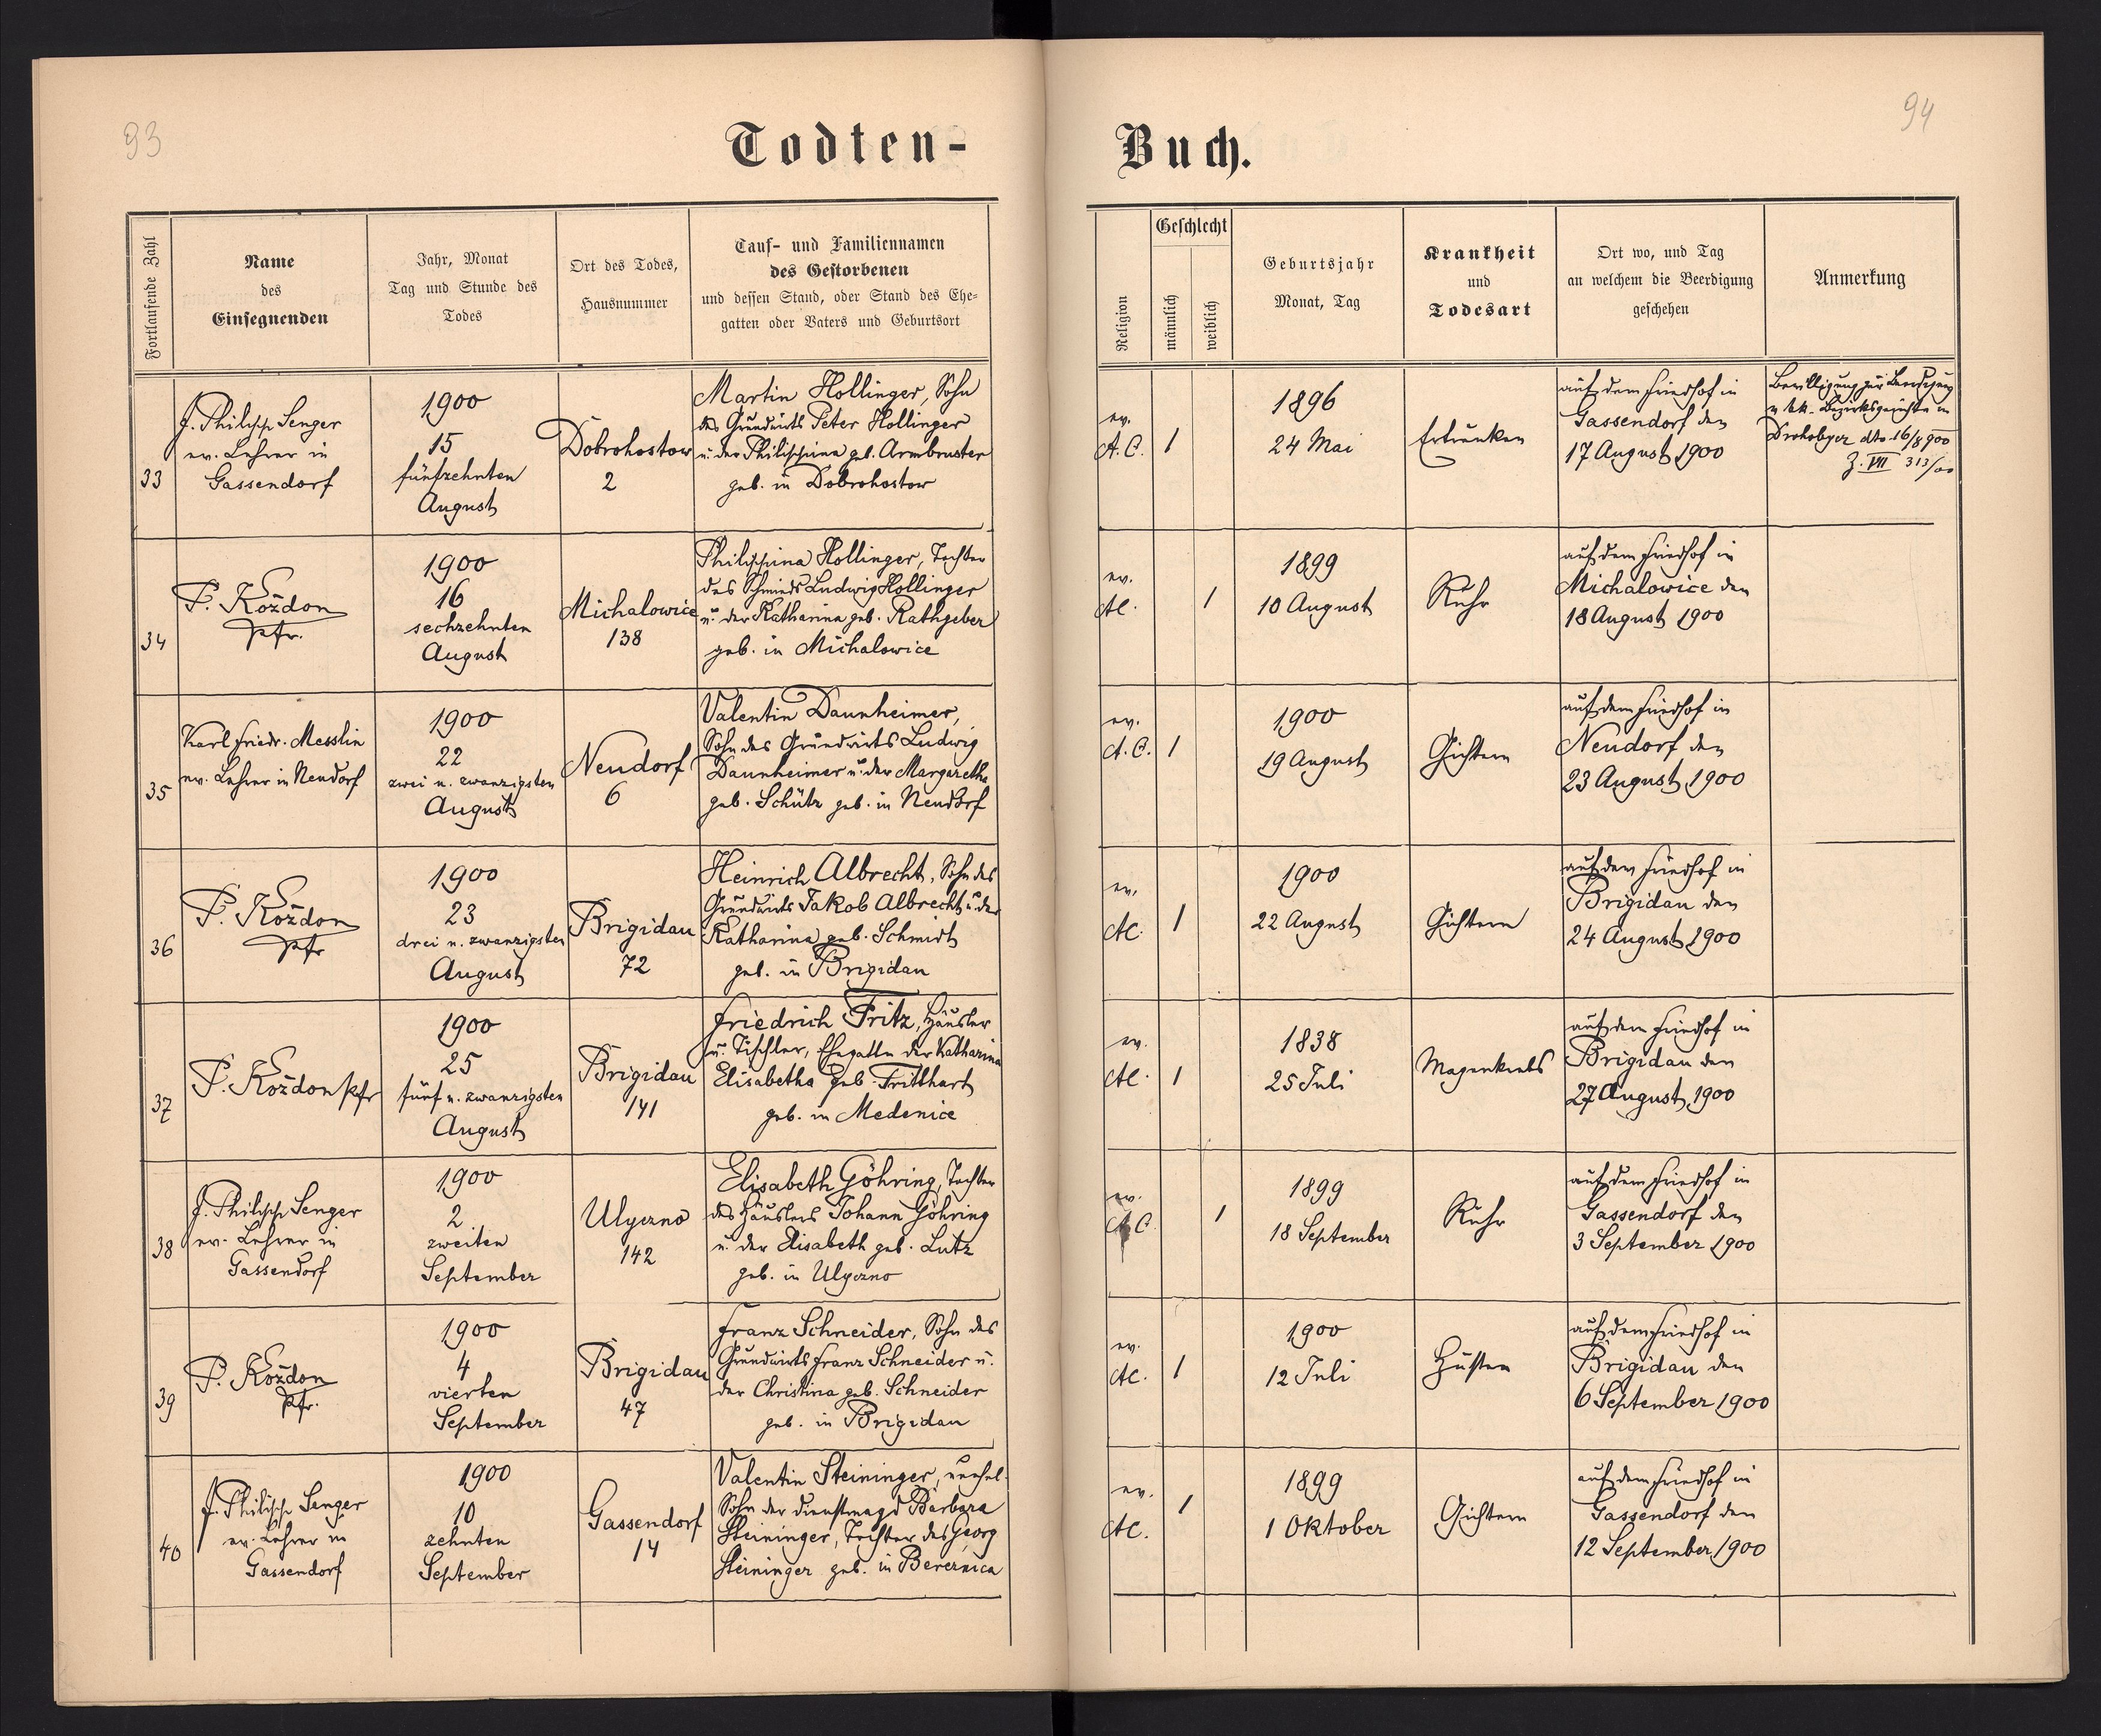 93
94
Todten-
Buch.
Fortlaufende Zahl
Name
des
Einsegnenden
Jahr, Monat
Tag und Stunde des
Todes
Ort des Todes,
Hausnummer
Tauf- und Familiennamen
des Gestorbenen
und dessen Stand, oder Stand des Ehe-
gatten oder Vaters und Geburtsort
Religion
Geschlecht
männlich
weiblich
Geburtsjahr
Monat, Tag
Krankheit
und
Todesart
Ort wo, und Tag
an welchem die Beerdigung
geschehen
Anmerkung
33
J. Philipp Senger
ev. Lehrer in
Gassendorf
1900
15
fünfzehnten
August
Dobrohostow
2
Martin Hollinger, Sohn
des Grundwirts Peter Hollinger
u. der Philippina geb. Armbruster
geb. in Dobrohostow
ev.
A.C.
1
1896
24 Mai
Ertrunken
auf dem Friedhof in
Gassendorf den
17 August 1900
Bewilligung zur Beerdigung
v. k.k. Bezirksgerichte in
Drohobycz dto. 16/8 900
Z. VII 313/00
34
P. Kożdon
Pfr.
1900
16
sechzehnten
August
Michalowice
138
Philippina Hollinger, Tochter
des Schmieds Ludwig Hollinger
u. der Katharina geb. Rathgeber
geb. in Michalowice
ev.
AC.
1
1899
10 August
Ruhr
auf dem Friedhof in
Michalowice den
18 August 1900
35
Karl Friedr. Messlin
ev. Lehrer in Neudorf
1900
22
zwei u. zwanzigsten
August
Neudorf
6
Valentin Daunheimer,
Sohn des Grundwirts Ludwig
Daunheimer u. der Margaretha
geb. Schütz geb. in Neudorf
ev.
A.C.
1
1900
19 August
Gichtern
auf dem Friedhof in
Neudorf den
23 August 1900
36
P. Kożdon
Pfr
1900
23
drei u. zwanzigsten
August
Brigidau
72
Heinrich Albrecht, Sohn des
Grundwirts Jakob Albrecht u. der
Katharina geb. Schmidt
geb. in Brigidau
ev.
AC.
1
1900
22 August
Gichtern
auf dem Friedhof in
Brigidau den
24 August 1900
37
P. Kożdon Pfr
1900
25
fünf u. zwanzigsten
August
Brigidau
141
Friedrich Fritz, Häusler
u. Tischler, Ehegatte der Katharina
Elisabetha geb. Fritthart
geb. in Medenice
ev.
AC.
1
1838
25 Juli
Magenkrebs
auf dem Friedhof in
Brigidau den
27 August 1900
38
J. Philipp Senger
ev. Lehrer in
Gassendorf
1900
2
zweiten
September
Ulyczno
142
Elisabeth Göhring, Tochter
des Häuslers Johann Göhring
u. der Elisabeth geb. Lutz
geb. in Ulyczno
ev.
A.C.
1
1899
18 September
Ruhr
auf dem Friedhof in
Gassendorf den
3 September 1900
39
P. Kożdon
Pfr.
1900
4
vierten
September
Brigidau
47
Franz Schneider, Sohn des
Grundwirts Franz Schneider u.
der Christina geb. Schneider
geb. in Brigidau
ev.
AC.
1
1900
12 Juli
Husten
auf dem Friedhof in
Brigidau den
6 September 1900
40
J. Philipp Senger
ev. Lehrer in
Gassendorf
1900
10
zehnten
September
Gassendorf
14
Valentin Steininger, unehel.
Sohn der Dienstmagd Barbara
Steininger, Tochter des Georg
Steininger geb. in Bereźnica
ev.
AC.
1
1899
1 Oktober
Gichtern
auf dem Friedhof in
Gassendorf den
12 September 1900